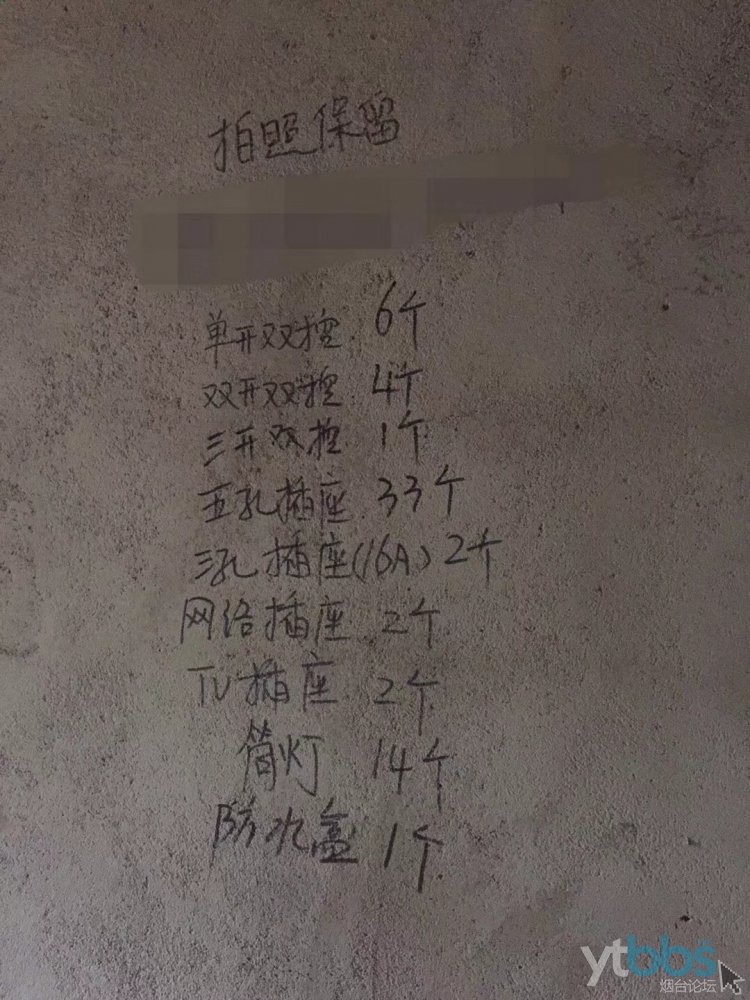 拍照保留
单开双控 6个
双开双控 4个
三开双控 1个
五孔插座 33个
三孔插座(16A) 2个
网络插座 2个
TV插座 2个
筒灯 14个
防水盒 1个
ytbbs
烟台论坛